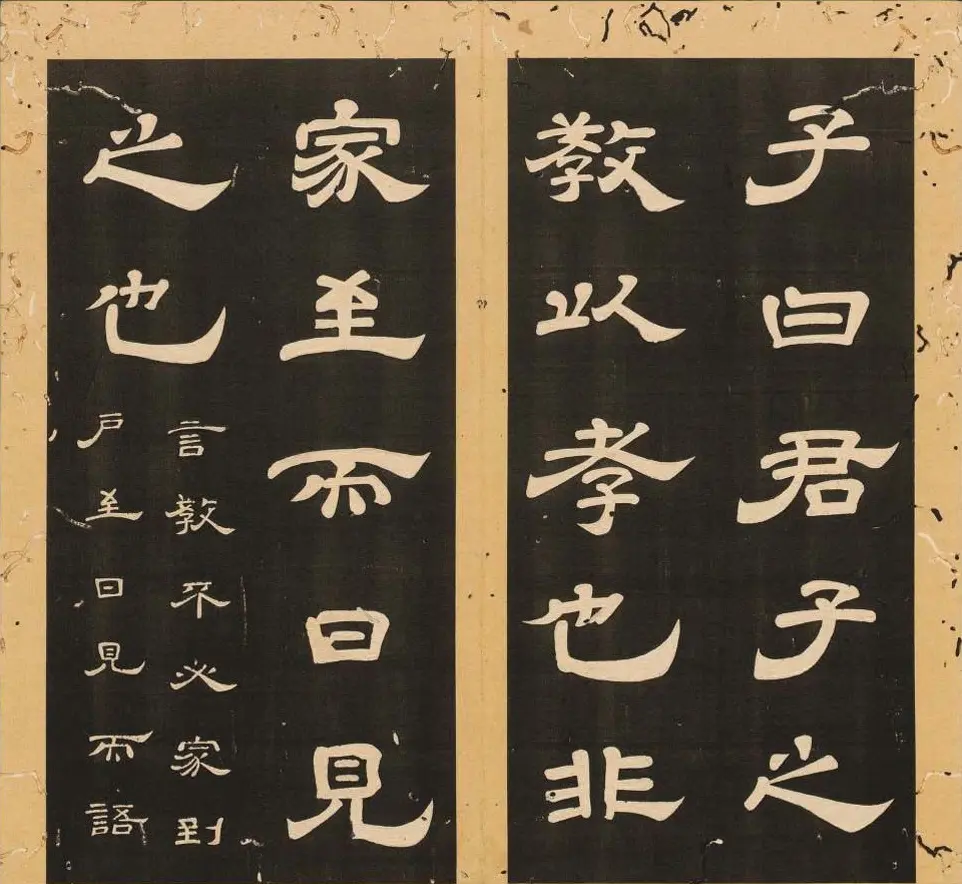 子曰君子之
教以孝也非
家至而日見
之也
言教不必家到
戶至日見而語